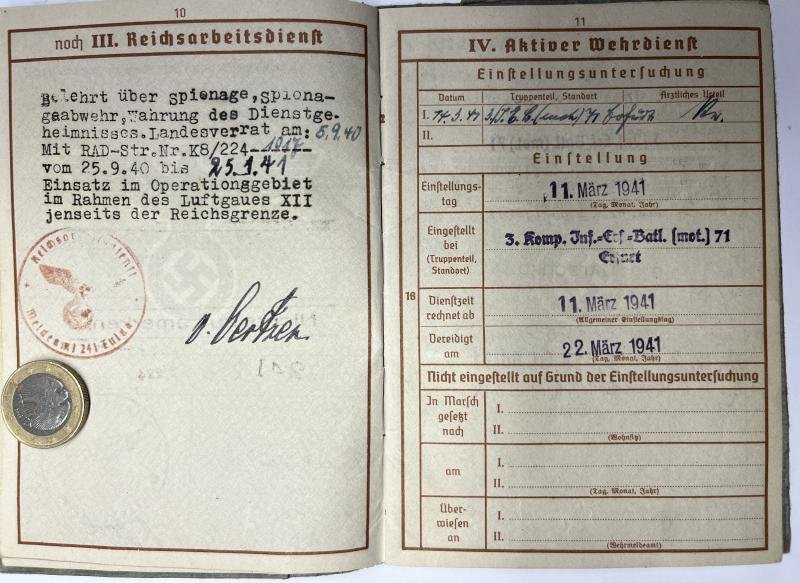 10
noch III. Reichsarbeitsdienst
Belehrt über Spionage, Spiona-
gaabwehr, Wahrung des Dienstge-
heimnisses. Landesverrat am: 5.9.40
Mit RAD-Str. Nr. K8/224-1017-
vom 25.9.40 bis 25.1.41
Einsatz im Operationggebiet
im Rahmen des Luftgaues XII
jenseits der Reichsgrenze.
Meldeamt 241
v. Oertzen
11
IV. Aktiver Wehrdienst
Einstellungsuntersuchung
Datum Truppenteil, Standort Ärztliches Urteil
I. 14.3.41 (mot) 71 Kv.
II.
Einstellung
Einstellungs-
tag
11. März 1941
(Tag, Monat, Jahr)
Eingestellt
bei
(Truppenteil,
Standort)
3. Komp. Inf.=Ers.=Batl. (mot.) 71
Erfurt
16
Dienstzeit
rechnet ab
11. März 1941
(Allgemeiner Einstellungstag)
Vereidigt
am
22. März 1941
(Tag, Monat, Jahr)
Nicht eingestellt auf Grund der Einstellungsuntersuchung
In Marsch
gesetzt
nach
I.
II.
(Wohnsitz)
am
I.
II.
(Tag, Monat, Jahr)
Über-
wiesen
an
I.
II.
(Wehrmeldeamt)